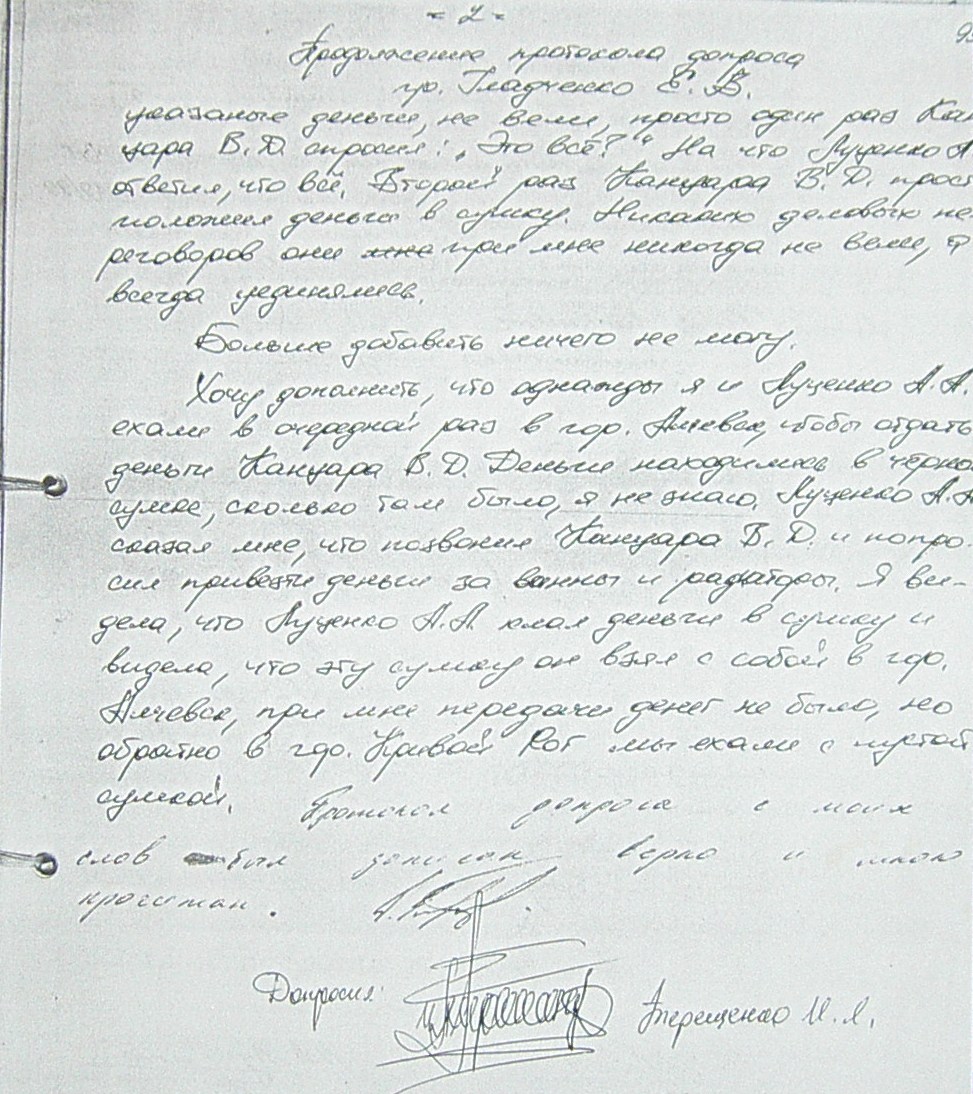 - 2 -
Продолжение протокола допроса
гр. Гладченко Е. В.
указаные деньги, не вели, просто один раз Кан
цара В. Д. спросил: „Это всё?“ На что Луценко А
ответил, что всё. Второй раз Канцара В. Д. прост
положил деньги в сумку. Никаких деловых пе
реговоров они при мне никогда не вели, а
всегда уединялись.
Больше добавить ничего не могу.
Хочу дополнить, что однажды я и Луценко А. А.
ехали в очередной раз в гор. Алчевск, чтобы отдать
деньги Канцара В. Д. Деньги находились в черно
сумке, сколько там было, я не знаю. Луценко А. А
сказал мне, что позвонил Канцара В. Д. и попро-
сил привезти деньги за ванны и радиаторы. Я ви-
дела, что Луценко А. А. клал деньги в сумку и
видела, что эту сумку он взял с собой в гор.
Алчевск, при мне передачи денег не было, но
обратно в гор. Кривой Рог мы ехали с пустой
сумкой. Протокол допроса с моих
слов был записан верно и мною
прочитан.
Допросил: Терещенко И. Л.